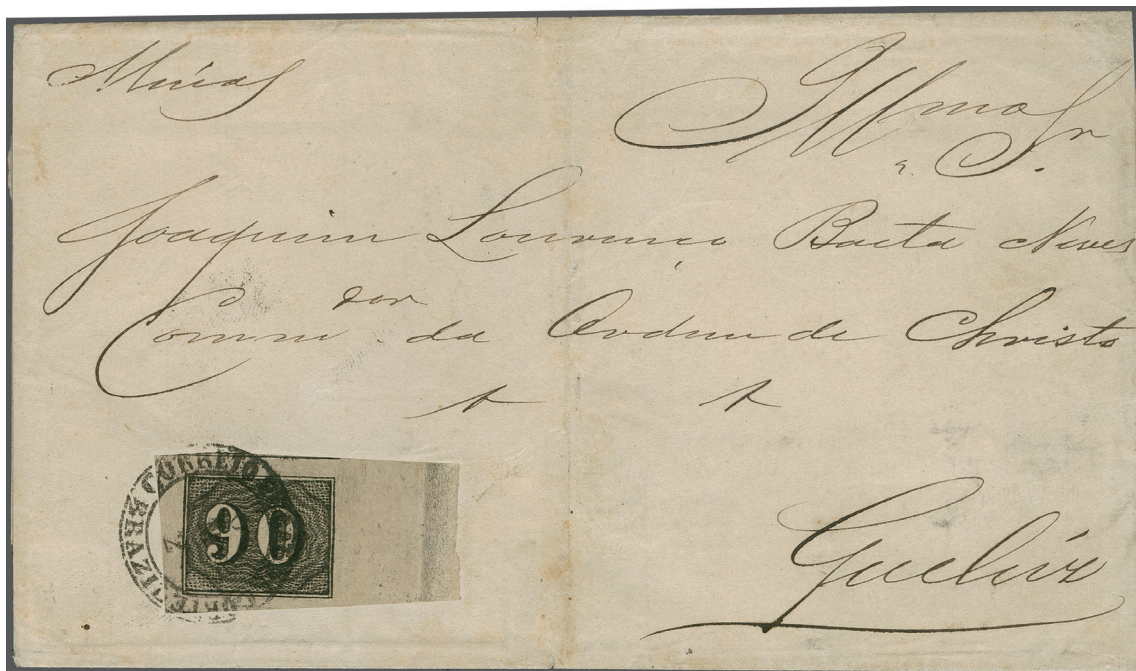 Minas
Illmo Sr.
Joaquim Lourenço Baeta Neves
Commdor da Ordem de Christo
Queluz
90
CORREIO
BRAZIL CORTE